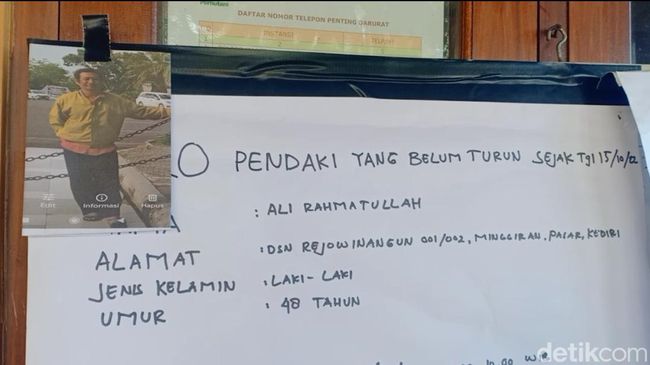 DAFTAR NOMOR TELEPON PENTING DARURAT
INSTANSI
PENDAKI YANG BELUM TURUN SEJAK Tgl 15/10/22
: ALI RAHMATULLAH
ALAMAT : DSN REJOWINANGUN 001/002, MINGGIRAN, PAPAR, KEDIRI
JENIS KELAMIN : LAKI-LAKI
UMUR : 48 TAHUN
Edit Informasi Hapus
detikcom